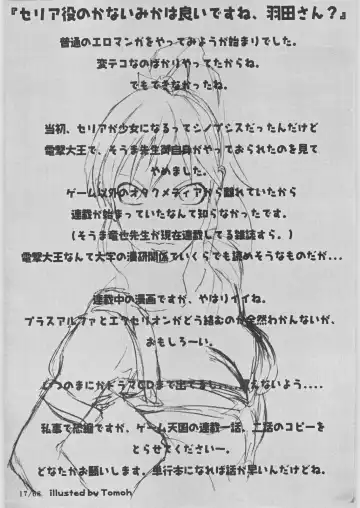 『セリア役のかないみかは良いですね、羽田さん？』
普通のエロマンガをやってみようが始まりでした。
変テコなのばかりやってたからね。
でもできなかったね。
当初、セリアが少女になるってシノプシスだったんだけど
電撃大王で、そうま先生御自身がやっておられたのを見て
やめました。
ゲーム以外のオタクメディアから離れていたから
連載が始まっていたなんて知らなかったです。
（そうま竜也先生が現在連載してる雑誌すら。）
電撃大王なんて大学の漫研関係でいくらでも読めそうなものだが...
連載中の漫画ですが、やはりイイね。
プラスアルファとエクセリオンがどう絡むのか全然わかんないが、
おもしろーい。
いつのまにかドラマCDまで出てるし...買えないよう....
私事で恐縮ですが、ゲーム天国の連載一話、二話のコピーを
とらせてくださいー。
どなたかお願いします。単行本になれば話が早いんだけどね。
17/68 illusted by Tomoh